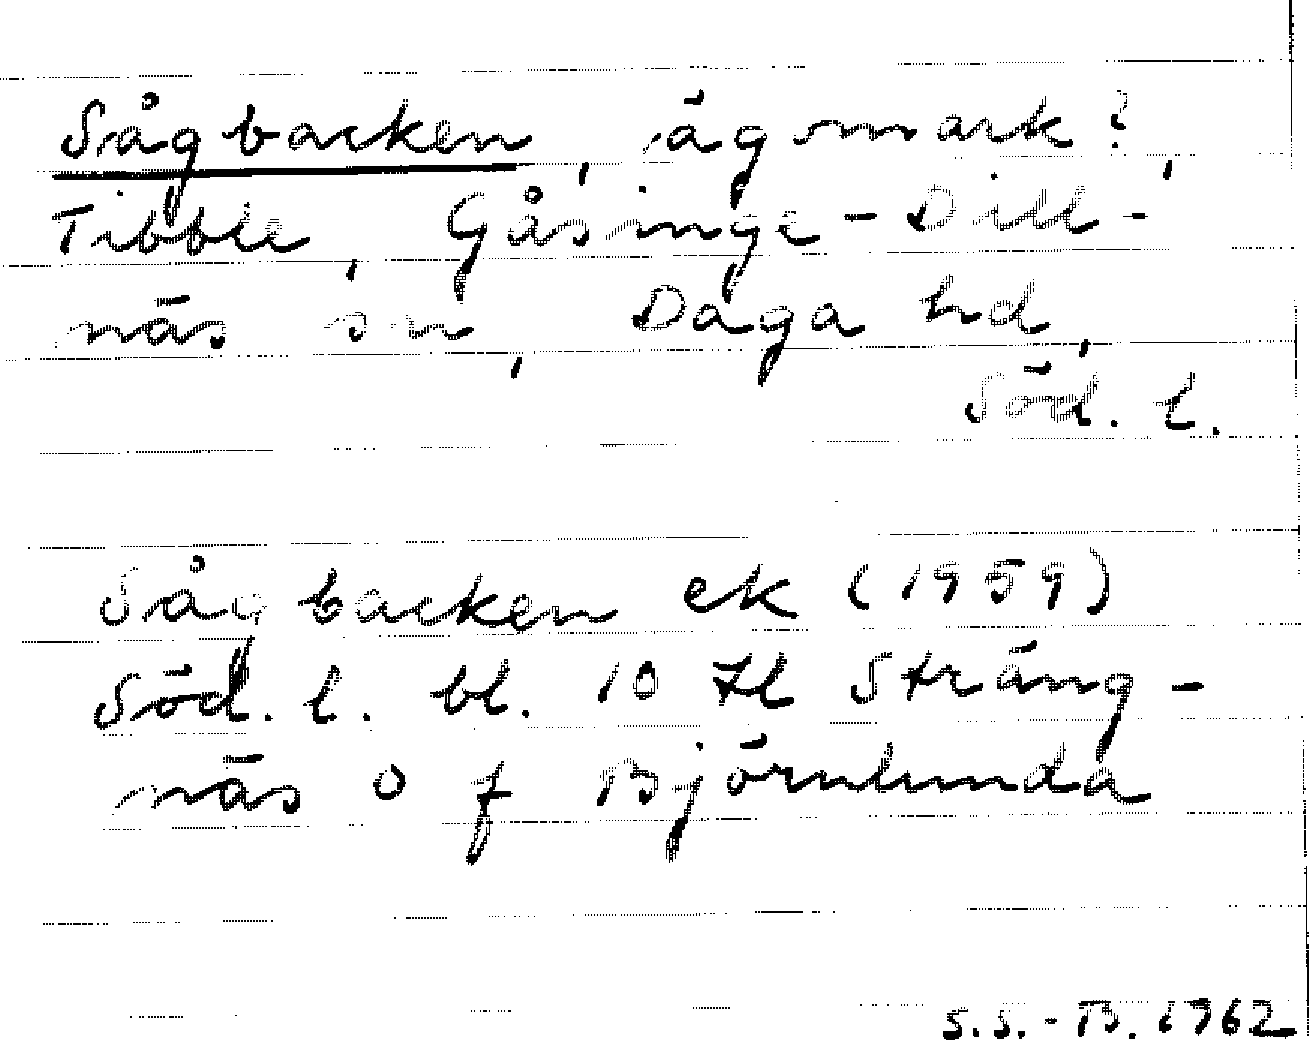 Sågbacken, ägomark?,
Tibble, Gåsinge-Dill-
näs sn, Daga hd,
Söd. l.
Sågbacken ek (1959)
Söd. l. bl. 10 Hl Sträng-
näs O f Björnlunda
S.S.-B. 1962